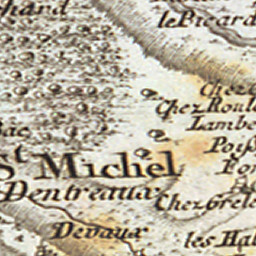 hard
le Picard
Chez
Chez Roul
Lambe
Poi
St Michel
Fon
Dentreaux
Chez Grele
Devaux
les Hal